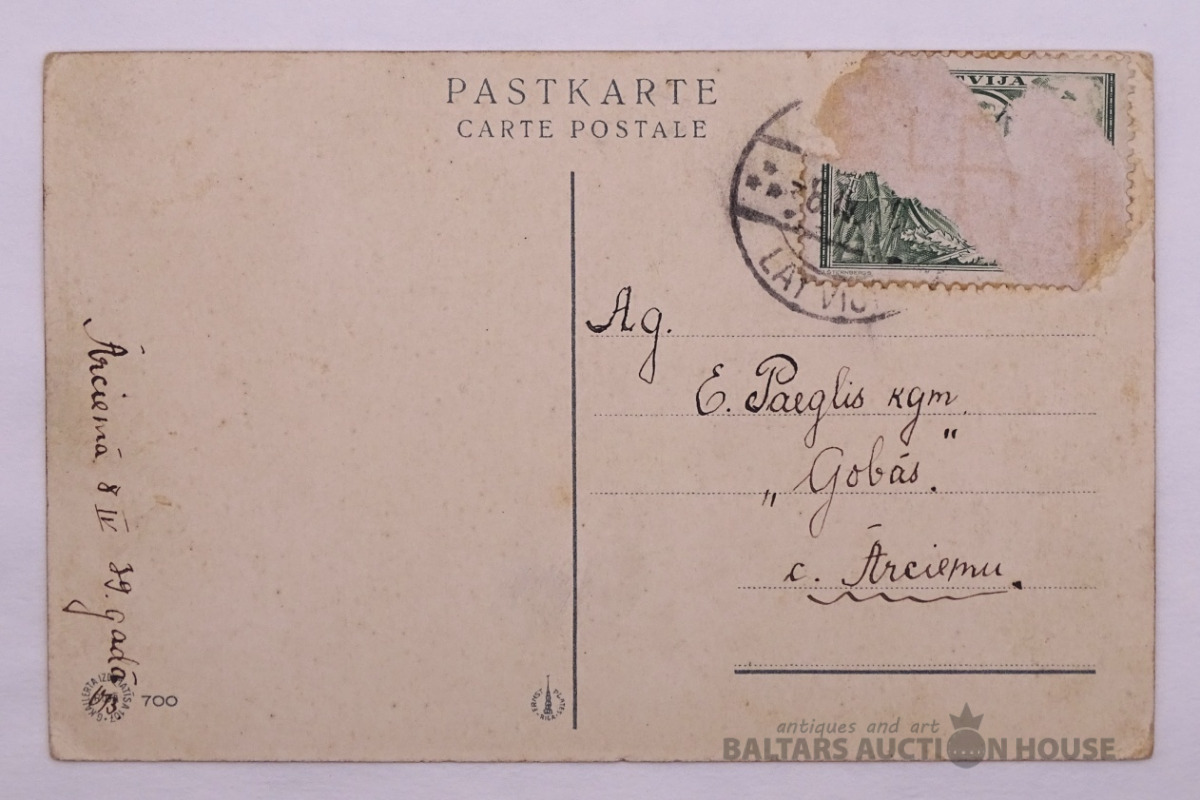 PASTKARTE
CARTE POSTALE
VIJA
8. IV
LATVIJA
Ag.
E. Paeglis kgm.
„Gobás."
c. Ārciemu.
Ārciemā 8 IV 39. gadā
700
ERNST PLATES RIGA
antiques and art
BALTARS AUCTION HOUSE